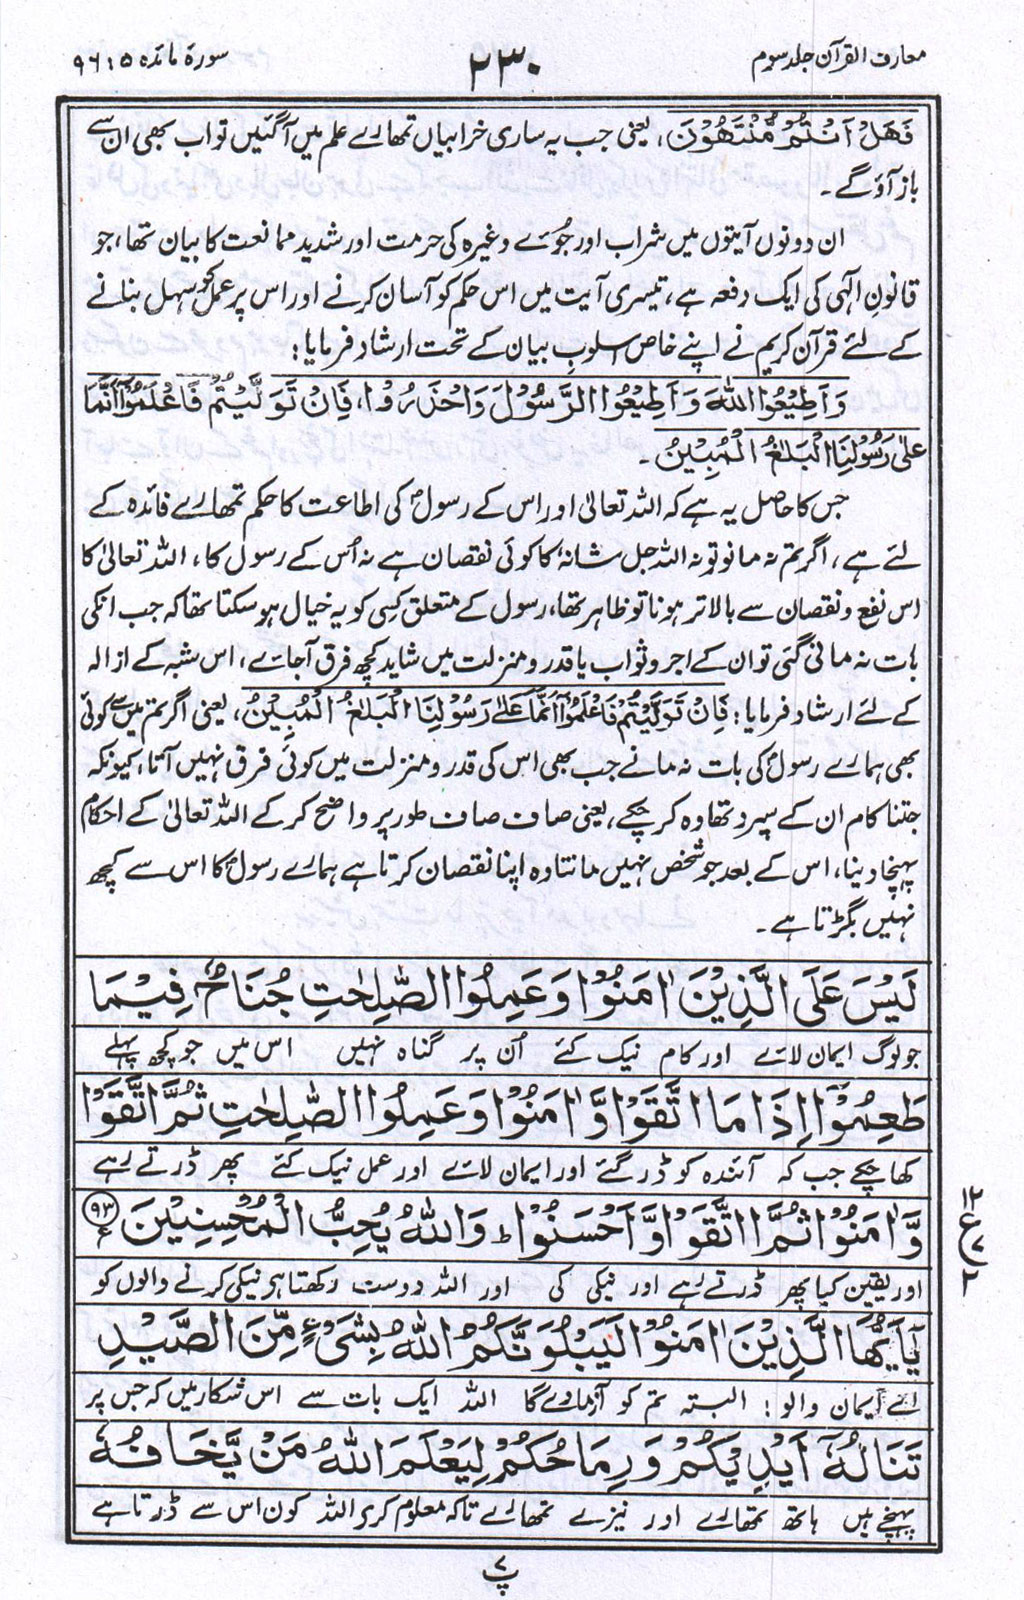 معارف القرآن جلد سوم
۲۳۰
سورۃ مائدہ ۵ : ۹۶
فَهَلْ اَنْتُمْ مُّنْتَهُوْنَ، یعنی جب یہ ساری خرابیاں تمھارے علم میں آگئیں تو اب بھی ان سے
باز آؤ گے۔
ان دونوں آیتوں میں شراب اور جُوئے وغیرہ کی حرمت اور شدید ممانعت کا بیان تھا، جو
قانونِ الٰہی کی ایک دفعہ ہے، تیسری آیت میں اس حکم کو آسان کرنے اور اس پر عمل کو سہل بنانے
کے لئے قرآن کریم نے اپنے خاص اسلوبِ بیان کے تحت ارشاد فرمایا:
وَاَطِيْعُوا اللهَ وَاَطِيْعُوا الرَّسُوْلَ وَاحْذَرُوْا، فَاِنْ تَوَلَّيْتُمْ فَاعْلَمُوْٓا اَنَّمَا
عَلٰى رَسُوْلِنَا الْبَلٰغُ الْمُبِيْنُ۔
جس کا حاصل یہ ہے کہ اللہ تعالیٰ اور اس کے رسولؐ کی اطاعت کا حکم تمھارے فائدہ کے
لئے ہے، اگر تم نہ مانو تو نہ اللہ جل شانہٗ کا کوئی نقصان ہے نہ اُس کے رسول کا، اللہ تعالیٰ کا
اس نفع و نقصان سے بالاتر ہونا تو ظاہر تھا، رسول کے متعلق کسی کو یہ خیال ہو سکتا تھا کہ جب انکی
بات نہ مانی گئی تو ان کے اجر و ثواب یا قدر و منزلت میں شاید کچھ فرق آجائے، اس شبہ کے ازالہ
کے لئے ارشاد فرمایا: فَاِنْ تَوَلَّيْتُمْ فَاعْلَمُوْٓا اَنَّمَا عَلٰى رَسُوْلِنَا الْبَلٰغُ الْمُبِيْنُ، یعنی اگر تم میں سے کوئی
بھی ہمارے رسولؐ کی بات نہ مانے جب بھی اس کی قدر و منزلت میں کوئی فرق نہیں آتا، کیونکہ
جتنا کام ان کے سپرد تھا وہ کر چکے، یعنی صاف صاف طور پر واضح کر کے اللہ تعالیٰ کے احکام
پہنچا دینا، اس کے بعد جو شخص نہیں مانتا وہ اپنا نقصان کرتا ہے ہمارے رسولؐ کا اس سے کچھ
نہیں بگڑتا ہے۔
لَيْسَ عَلَى الَّذِيْنَ اٰمَنُوْا وَعَمِلُوا الصّٰلِحٰتِ جُنَاحٌ فِيْمَا
جو لوگ ایمان لائے اور کام نیک کئے اُن پر گناہ نہیں اس میں جو کچھ پہلے
طَعِمُوْٓا اِذَا مَا اتَّقَوْا وَّاٰمَنُوْا وَعَمِلُوا الصّٰلِحٰتِ ثُمَّ اتَّقَوْا
کھا چکے جب کہ آئندہ کو ڈر گئے اور ایمان لائے اور عمل نیک کئے پھر ڈرتے رہے
وَّاٰمَنُوْا ثُمَّ اتَّقَوْا وَّاَحْسَنُوْا ؕ وَاللهُ يُحِبُّ الْمُحْسِنِيْنَ ۹۳ ع
اور یقین کیا پھر ڈرتے رہے اور نیکی کی اور اللہ دوست رکھتا ہو نیکی کرنے والوں کو
۱۲ ع ۷ ۲
يٰٓاَيُّهَا الَّذِيْنَ اٰمَنُوْا لَيَبْلُوَنَّكُمُ اللهُ بِشَيْءٍ مِّنَ الصَّيْدِ
اے ایمان والو! البتہ تم کو آزمادے گا اللہ ایک بات سے اس شکار میں کہ جس پر
تَنَالُهٗٓ اَيْدِيْكُمْ وَرِمَاحُكُمْ لِيَعْلَمَ اللهُ مَنْ يَّخَافُهٗ
پہنچے ہیں ہاتھ تمھارے اور نیزے تمھارے تاکہ معلوم کرے اللہ کون اس سے ڈرتا ہے
پ ۷